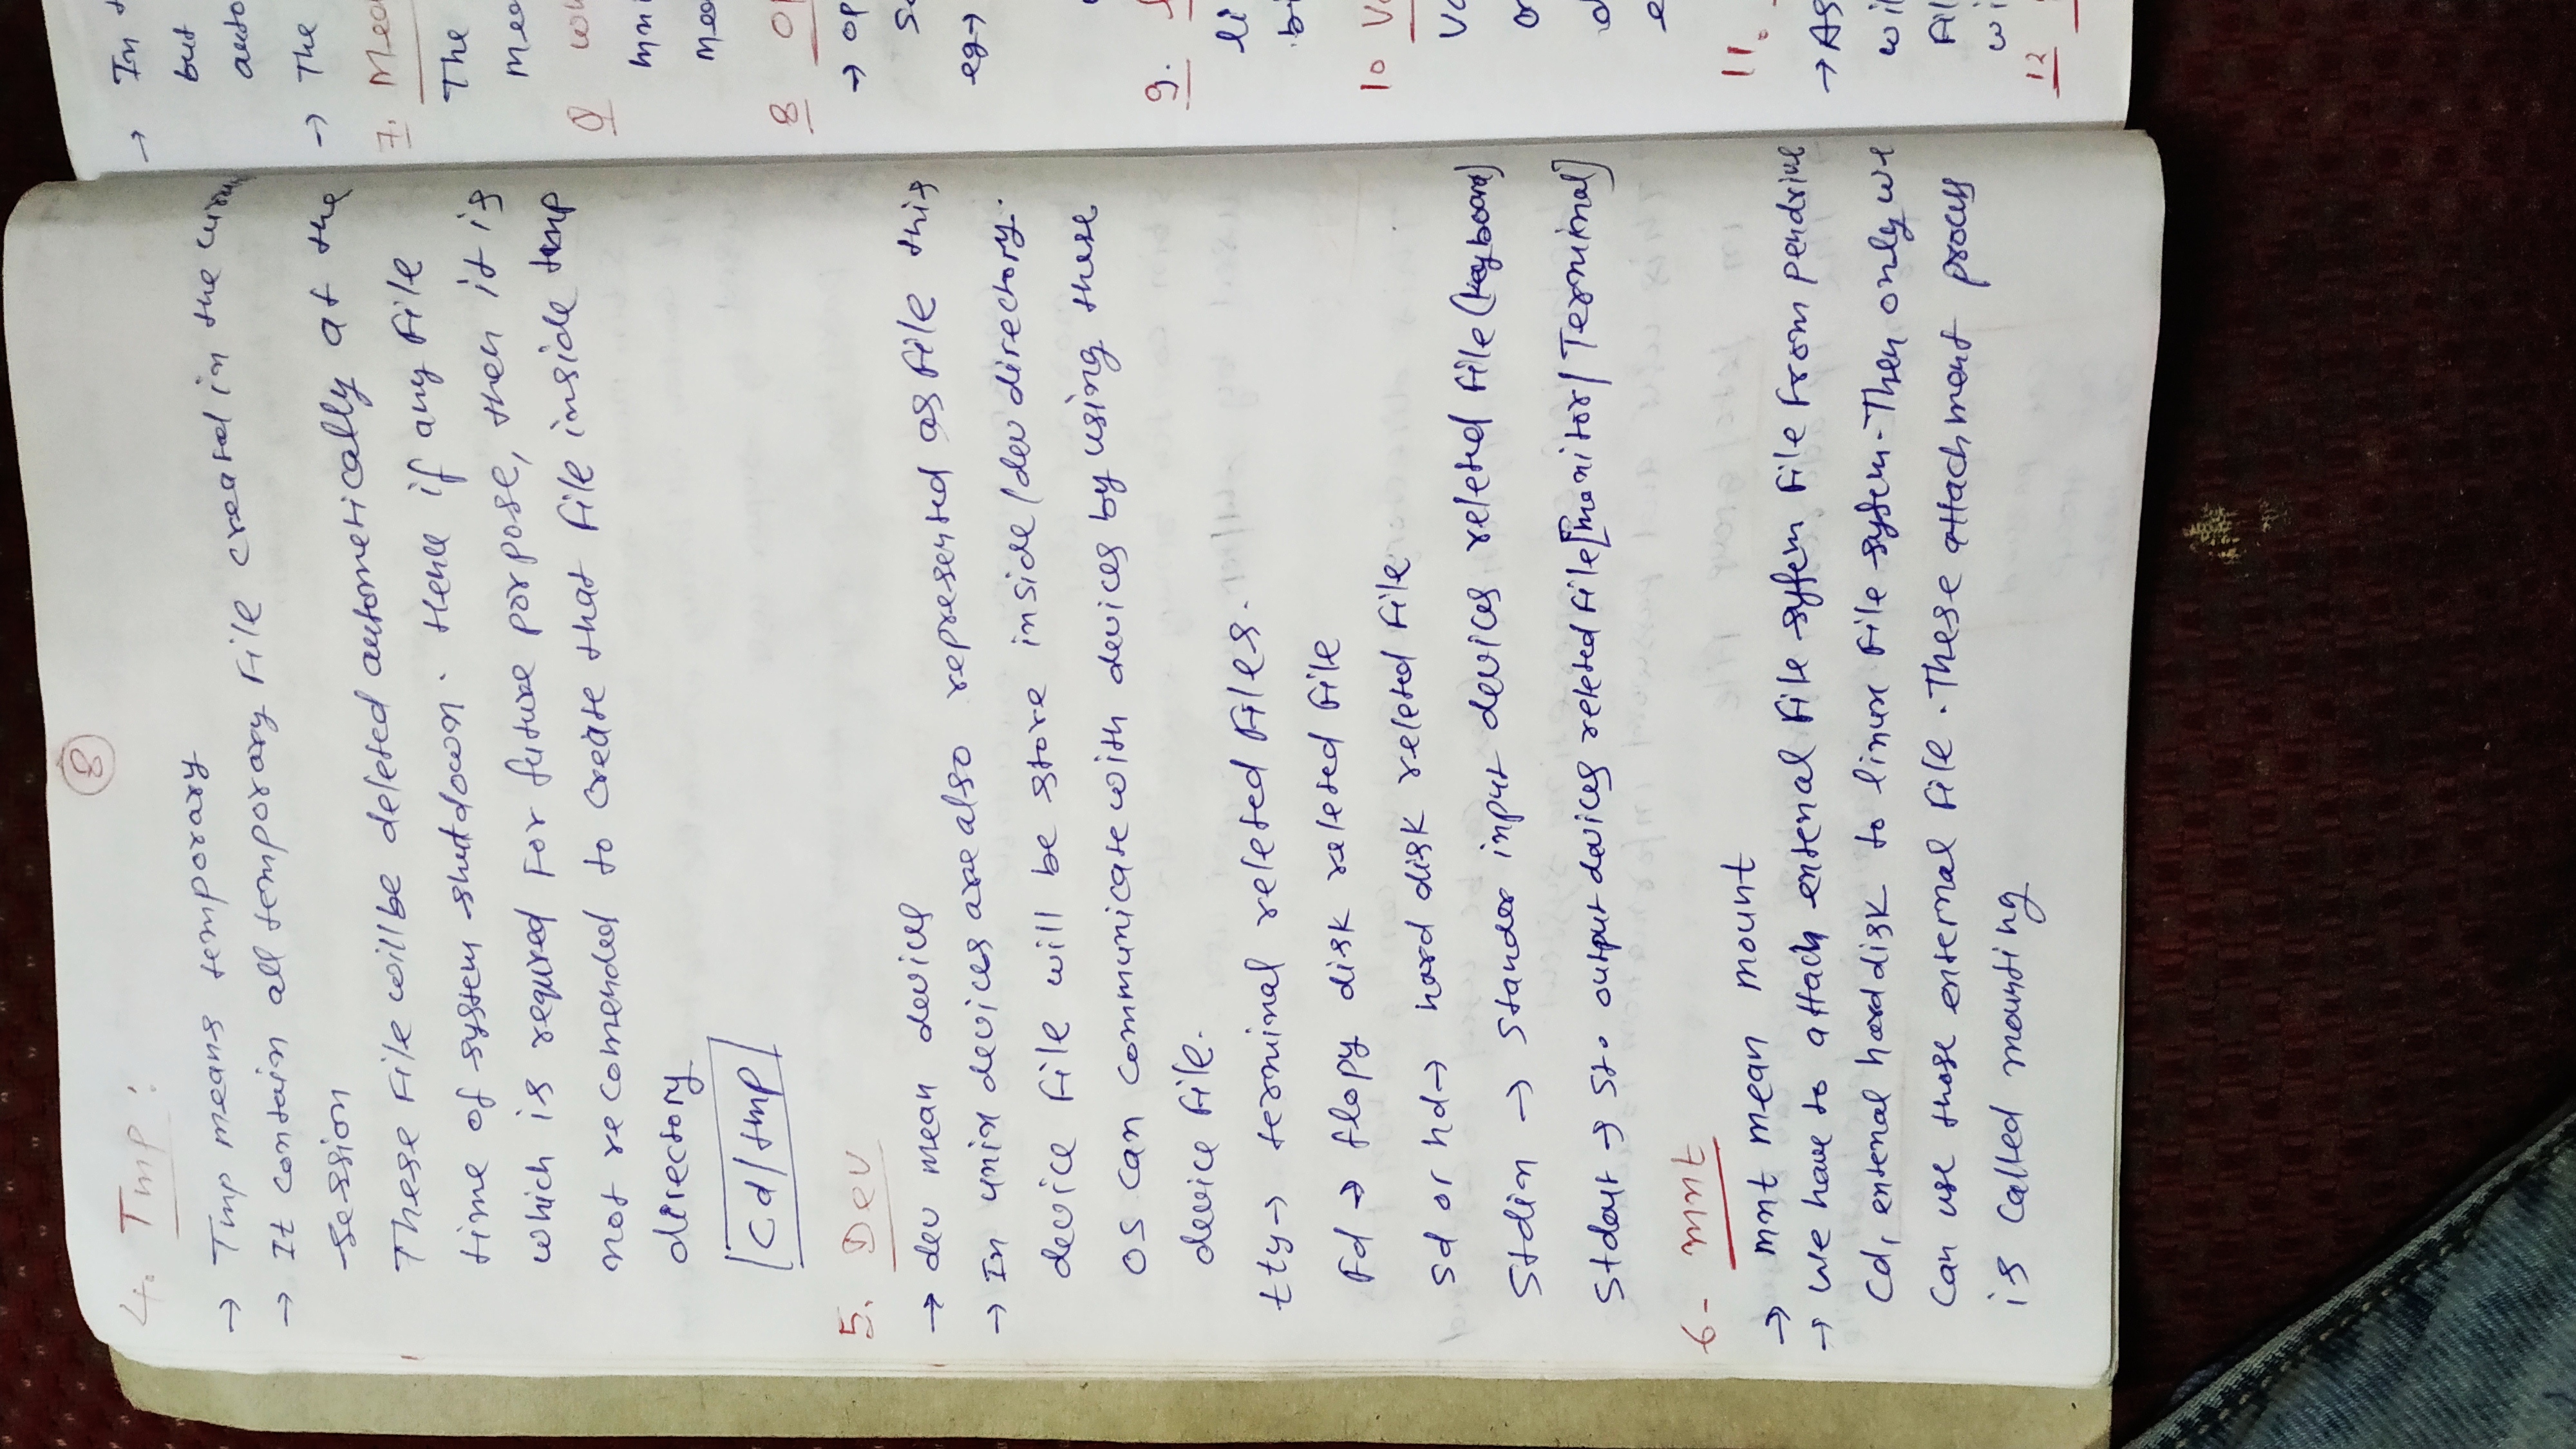 8
4. Tmp :
→ Tmp means temporary
→ It contain all temporary File created in the
session
These File will be deleted autometically at the
time of system shutdown. Hence if any File
which is requred For future porpose, then it is
not recomended to create that file inside tmp
directory
cd/tmp
5. Dev
→ dev mean devices
→ In unix devices are also represented as file this
device file will be store inside /dev directory.
OS can communicate with devices by using these
device file.
tty→ terminal releted Files.
Fd → flopy disk releted file
Sd or hd→ hard disk releted file
Stdin → Stander input devices releted file (keyboard)
Stdout → St. output devices releted file [monitor/ Terminal]
6- mnt
→ mnt mean mount
→ We have to attach extenal file system file from pendrive
Cd, extenal hard disk to linux file system. Then only we
Can use those external file. These attachment process
is called mounting
→ In
but
auto
→ The
7.
The
Q
8
→ op
eg→
9.
li
bi
10
or
11.
→ As
wil
Fil
wi
12